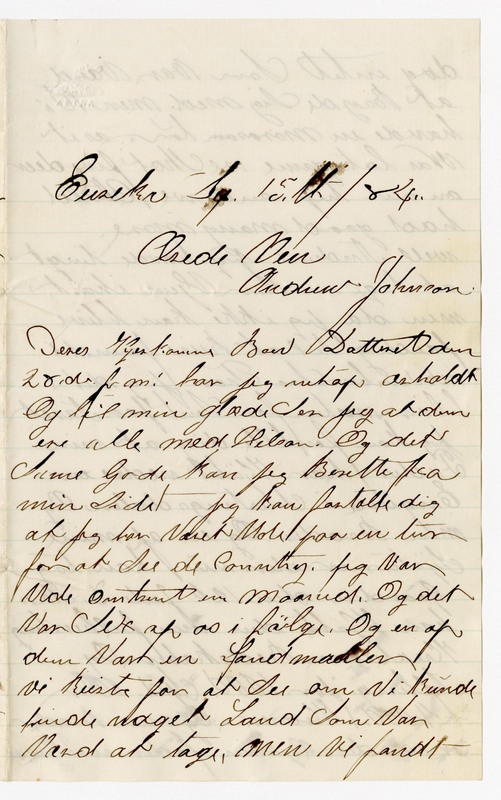 Eureka Sep. 15th / 84.
Ærede Ven
Andrew Johnson
Deres Kjerkomne Brev Datteret den
28de f m: har jeg netop erholdt
Og til min glæde Ser jeg at dem
ere alle med Hilsen. Og det
Same Gode kan jeg Berette fra
min Side jeg kan fortælle dig
at jeg har Været Ude paa en tur
for at See de Country. jeg Var
Ude omtrent en Maaned. Og det
Var Sex af os i følge. Og en af
dem Var en Landmaaller
Vi Reiste for at See om Vi Kunde
finde noget Land Som Var
Værd at tage, men Vi fandt